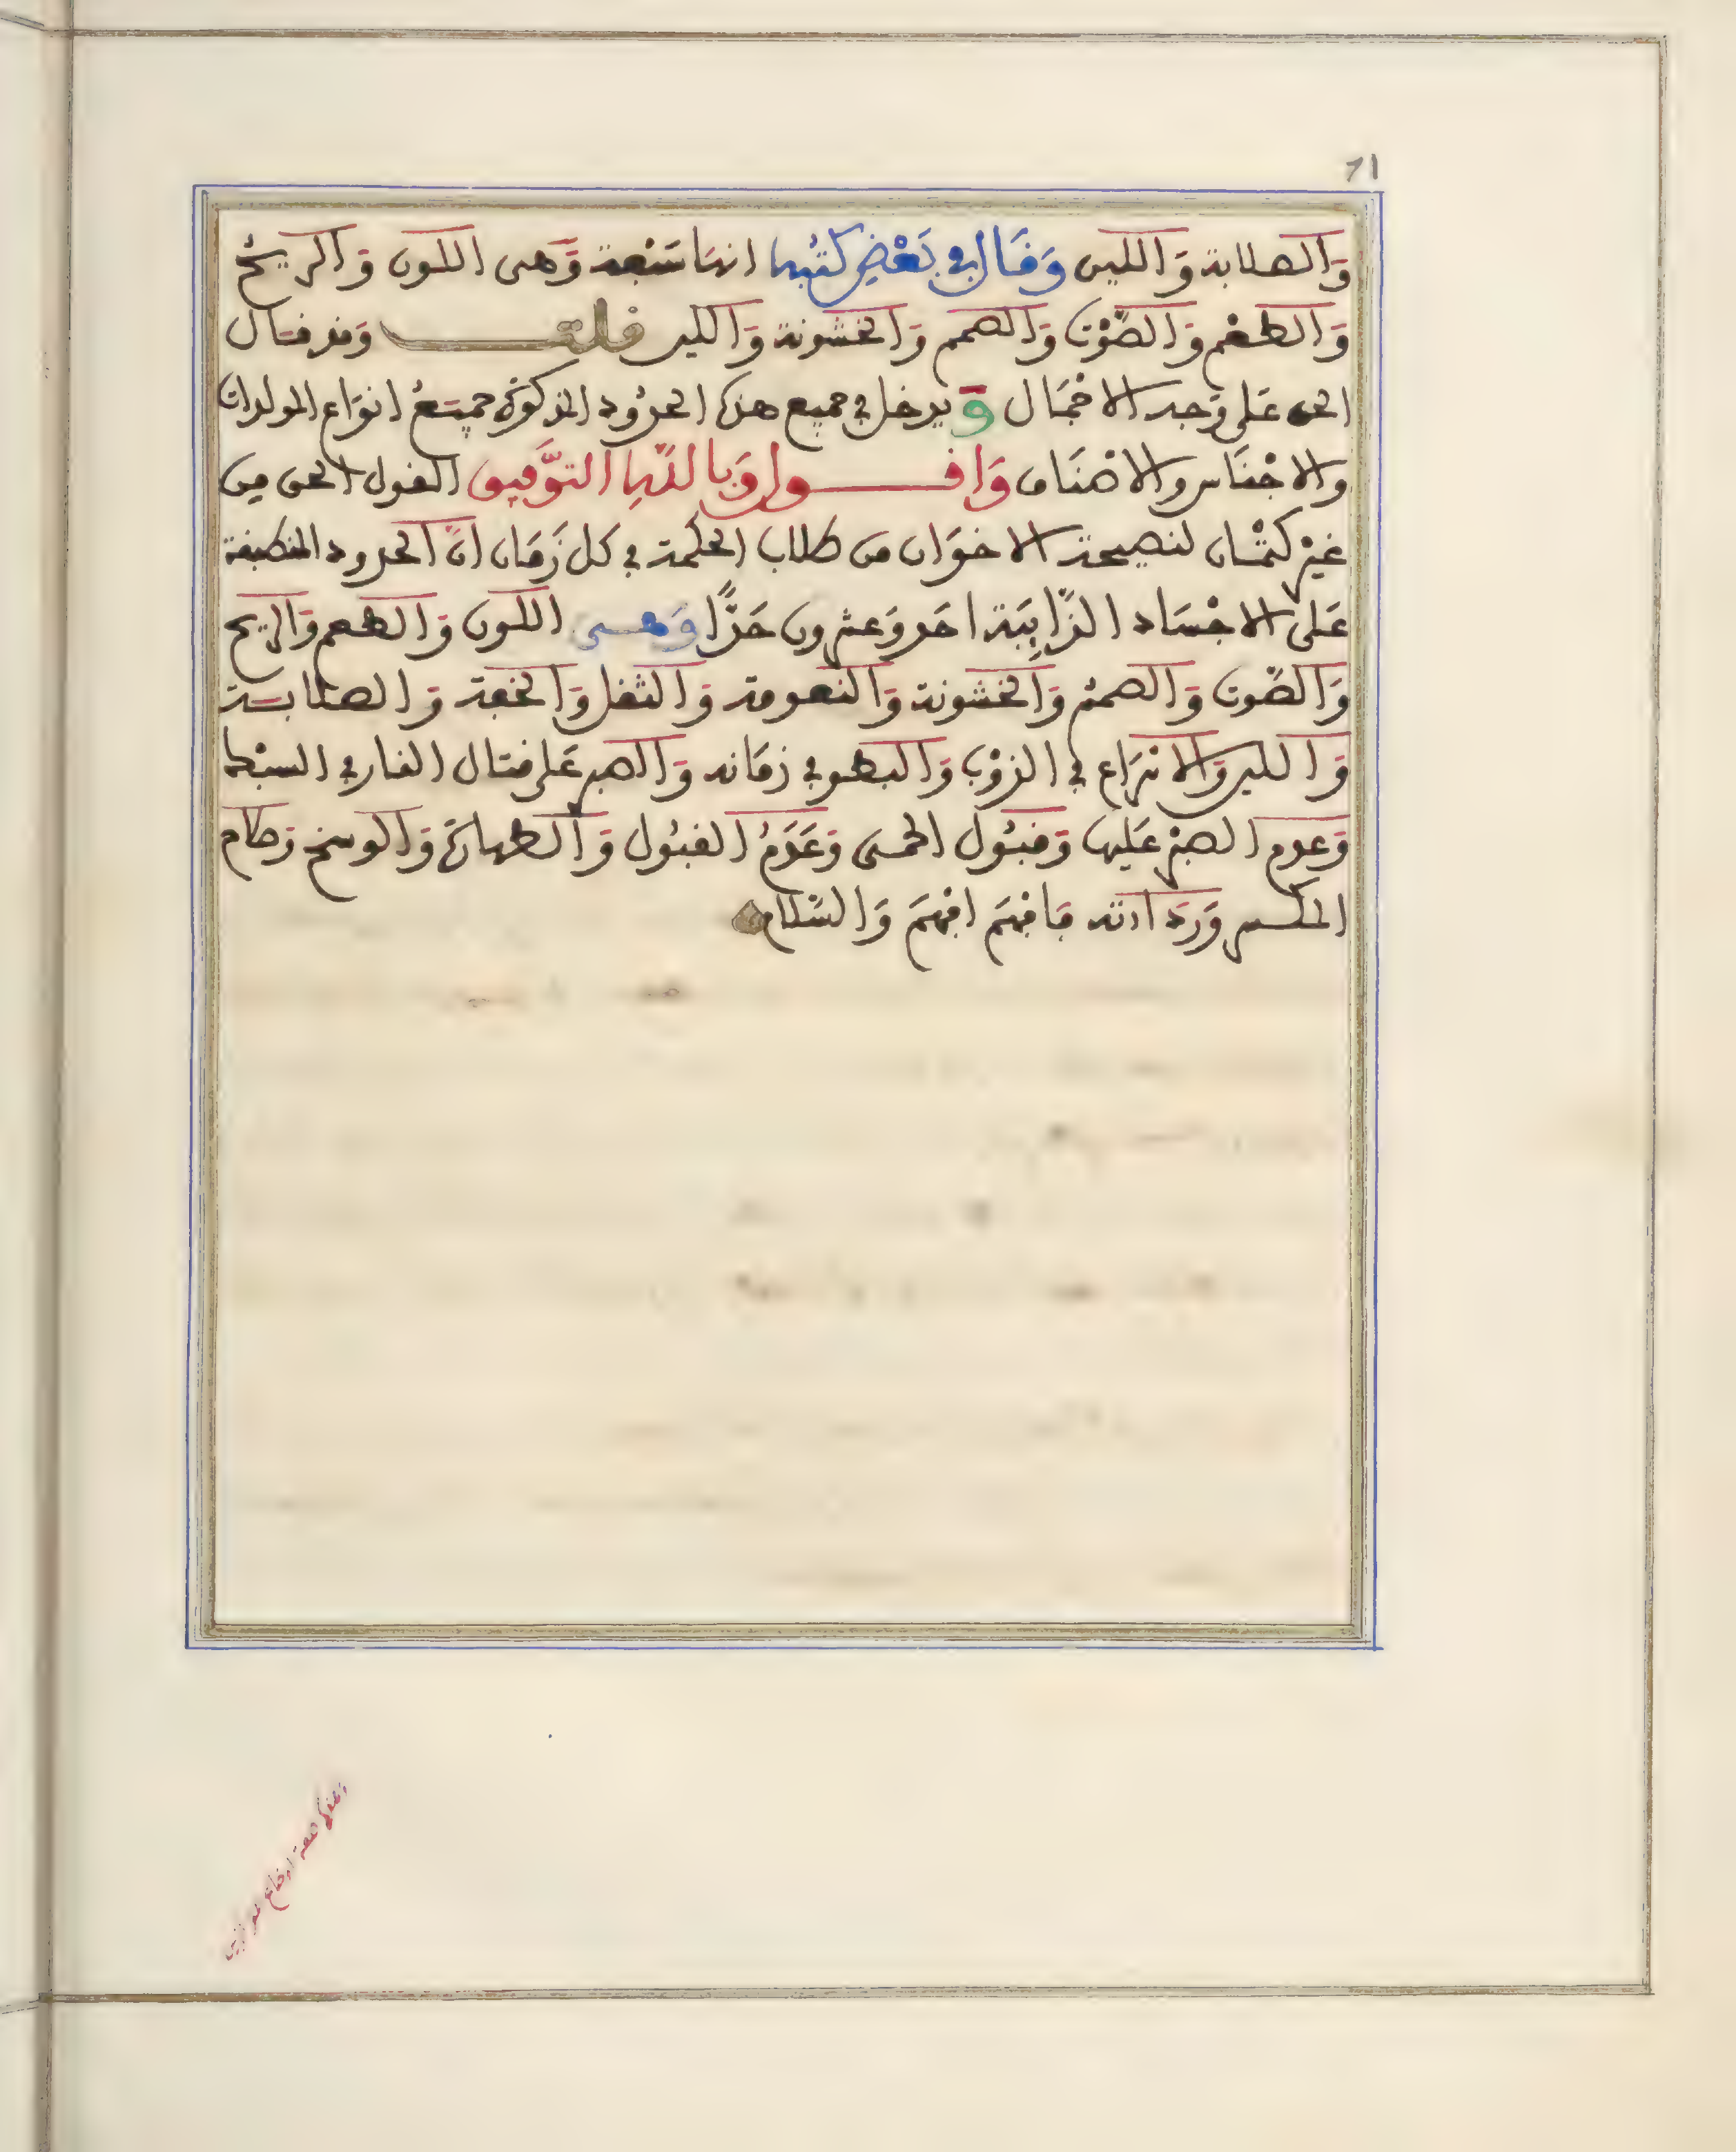 71
وَالصلابة وَاللين وَقَال في بَعْضِ كتُبه انها سَبْعة وَهى اللون وَالريحُ
وَالطعْم وَالصّوْت وَالصمم وَالخشونة وَاللين قلت وَقد قال
الحق عَلى وَجه الاجْمَال وَ يدخل في جميع هذه الحدُود المذكورَة جميعُ انوَاع المولدات
والاجْنَاس والاصْنَاف وَاقول وَبالله التوَّفيق القول الحق من
غيْر كتْمان لنصيحة الاخوَان من طلاب الحكمة في كل زَمَان انّ الحدود المنطبقة
عَلى الاجْسَاد الذّايِبَة احد وَعشرون حَدًّا وَهى اللون وَالطعم وَالريح
وَالصّوت وَالصمم وَالخشونة وَالنعومة وَالثقل وَالخفة وَالصلابة
وَاللين وَالانذرَاع في الذوْب وَالبطو في زمَانه وَالصبر عَلى قتال النار في السبْك
وَعدم الصبْر عَليه وَقبُول الحمى وَعَدَمُ القبُول وَالطهارَة وَالوسخ وَظلام
المكسر فَافهَم افهَم وَالسّلام